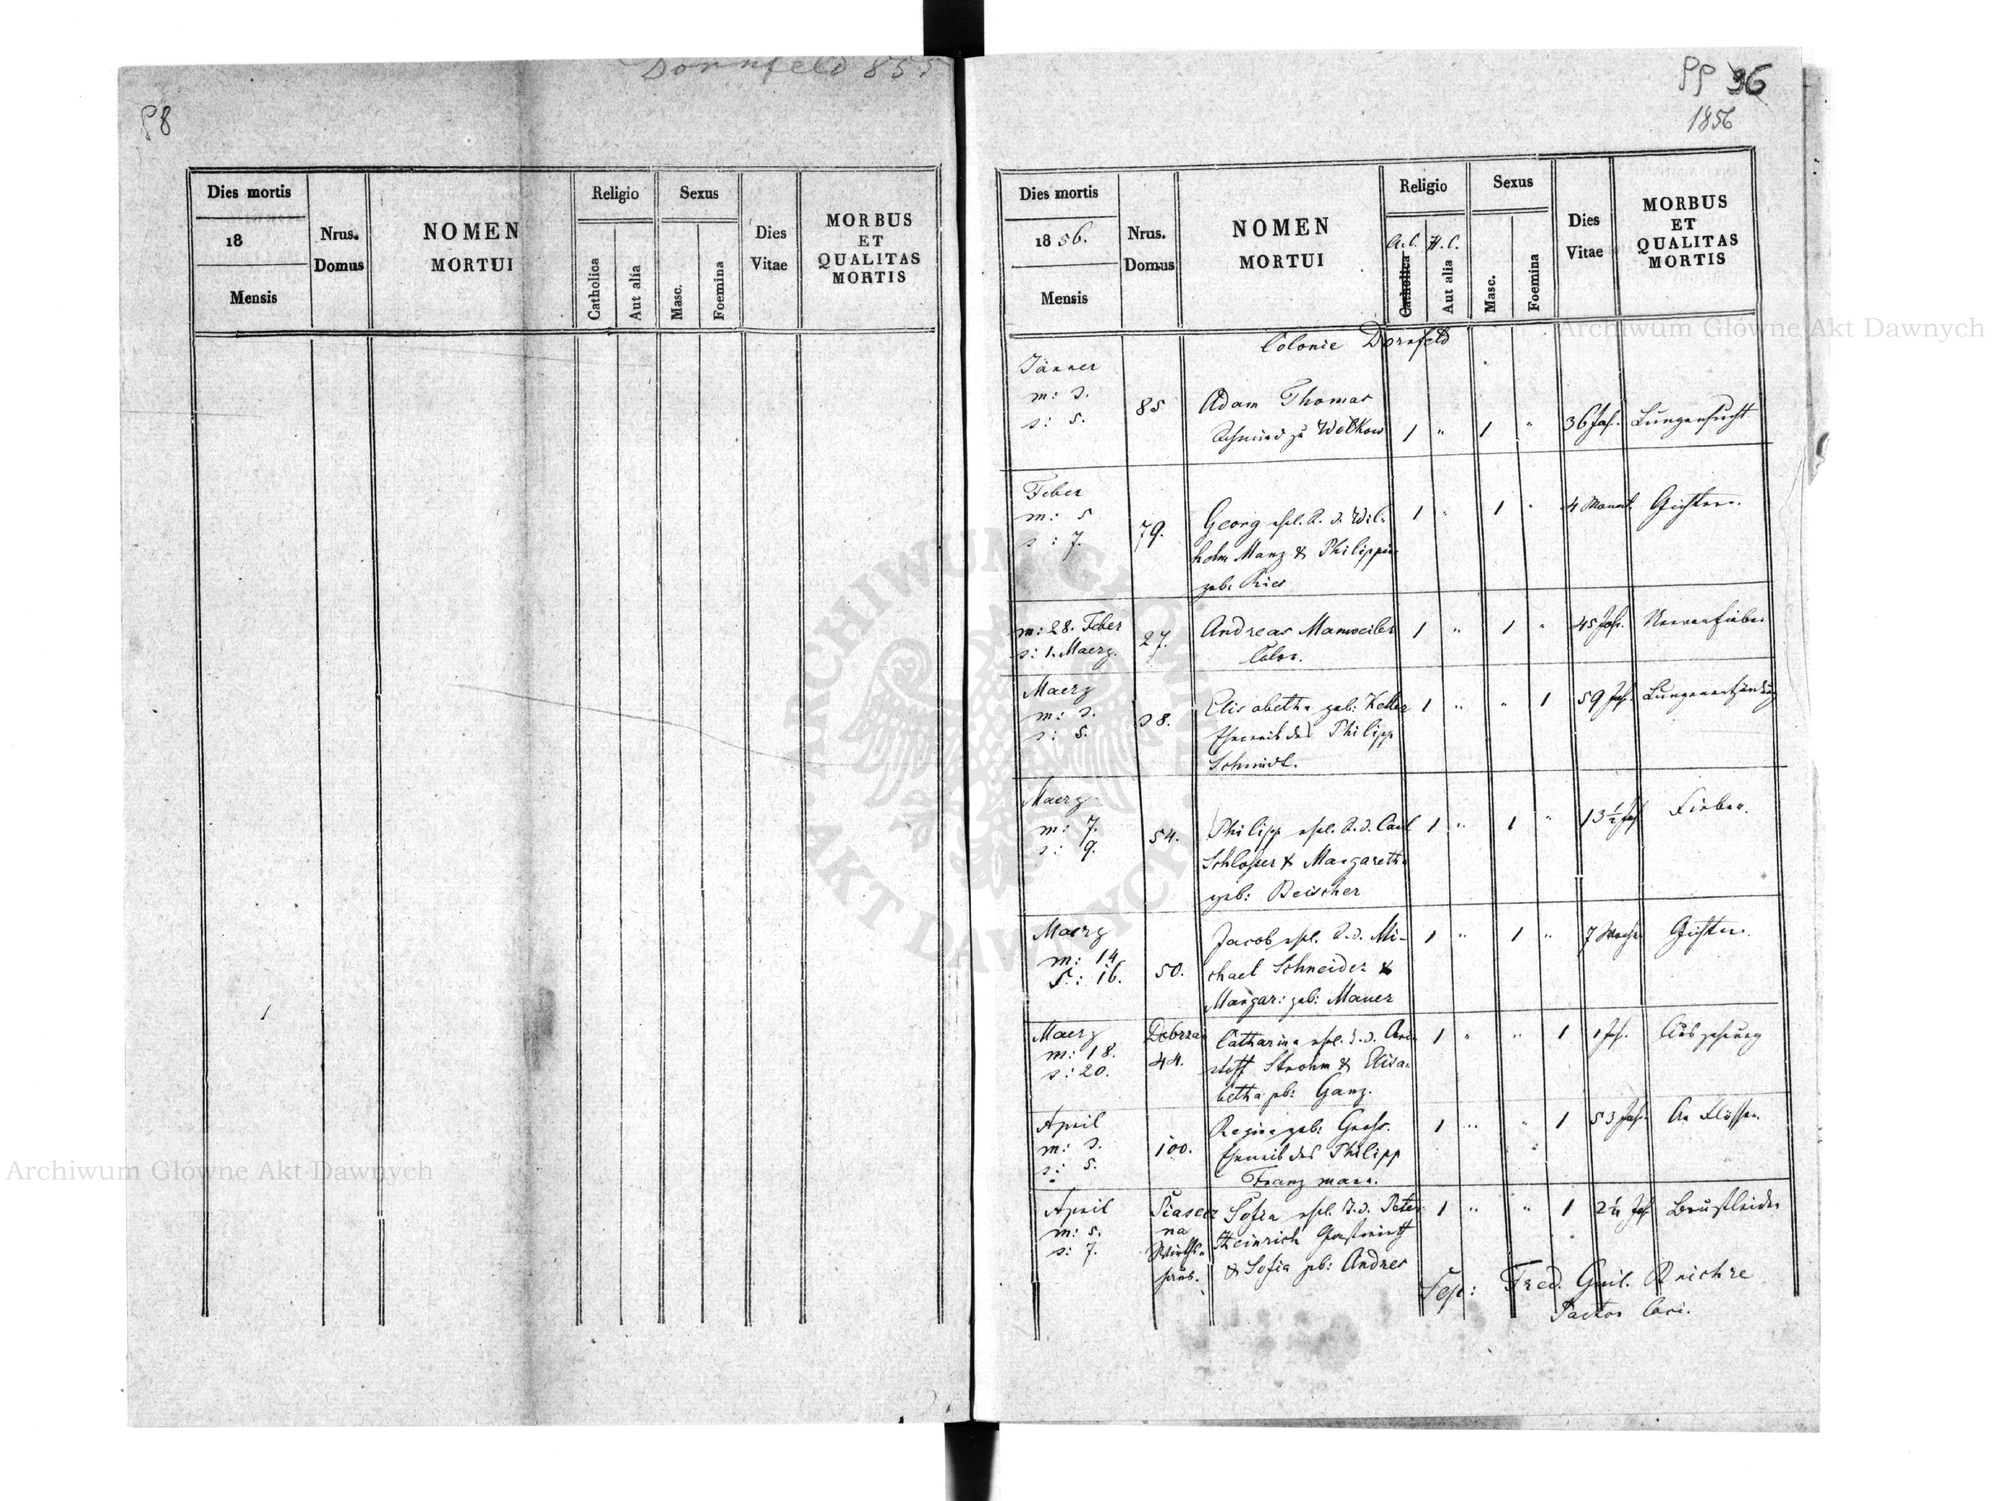 Dornfeld 855
98
Dies mortis
18
Mensis
Nrus.
Domus
NOMEN
MORTUI
Religio
Catholica
Aut alia
Sexus
Masc.
Foemina
Dies
Vitae
MORBUS
ET
QUALITAS
MORTIS
99 36
1856
Dies mortis
1856.
Mensis
Nrus.
Domus
NOMEN
MORTUI
Religio
A. C. H. C.
Catholica
Aut alia
Sexus
Masc.
Foemina
Dies
Vitae
MORBUS
ET
QUALITAS
MORTIS
Colonie Dornfeld
Jänner
m: 3.
s: 5.
85
Adam Thomas
Schmied zu Wolkow
1 " 1 "
36 Jah.
Lungensucht
Feber
m: 5
s: 7.
79.
Georg ehl. S. d. Wil-
helm Manz & Philippin
geb: Ries
1 " 1 "
4 Monat
Gichter.
m: 28. Feber
s: 1. Maerz.
27.
Andreas Manweiler
Colon.
1 " 1 "
45 Jah.
Nervenfieber
Maerz
m: 3.
s: 5.
38.
Elisabetha geb: Keller
Eheweib des Philipp
Schmidt.
1 " " 1
59 Jah.
Lungenentzündung
Maerz
m: 7.
s: 9.
54.
Philipp ehl. S. d. Carl
Schlosser & Margareth
geb: Beischer
1 " 1 "
13 1/2 Jah
Fieber.
Maerz
m: 14
S: 16.
50.
Jacob ehl. S. d. Mi-
chael Schneider &
Margar: geb: Mauer
1 " 1 "
7 Woche
Gichter.
Maerz
m: 18.
s: 20.
44.
Catharina ehl.
stoff Strohm & Elisa-
betha geb: Ganz.
1 " " 1
1 Jah.
Auszehrung
April
m: 3.
s: 5.
100.
Regina geb: Gross.
Eheweib des Philipp
Franzmann.
1 " " 1
53 Jah.
April
m: 5.
s: 7.
na
Wirths-
haus.
Sofia ehl. T. d. Peter
Heinrich Gastwirth
& Sofia geb: Andres
1 " " 1
Jah
Brustleiden
Fred. Guil.
Pastor loci.
Archiwum Główne Akt Dawnych
Archiwum Główne Akt Dawnych
ARCHIWUM GŁÓWNE
AKT DAWNYCH